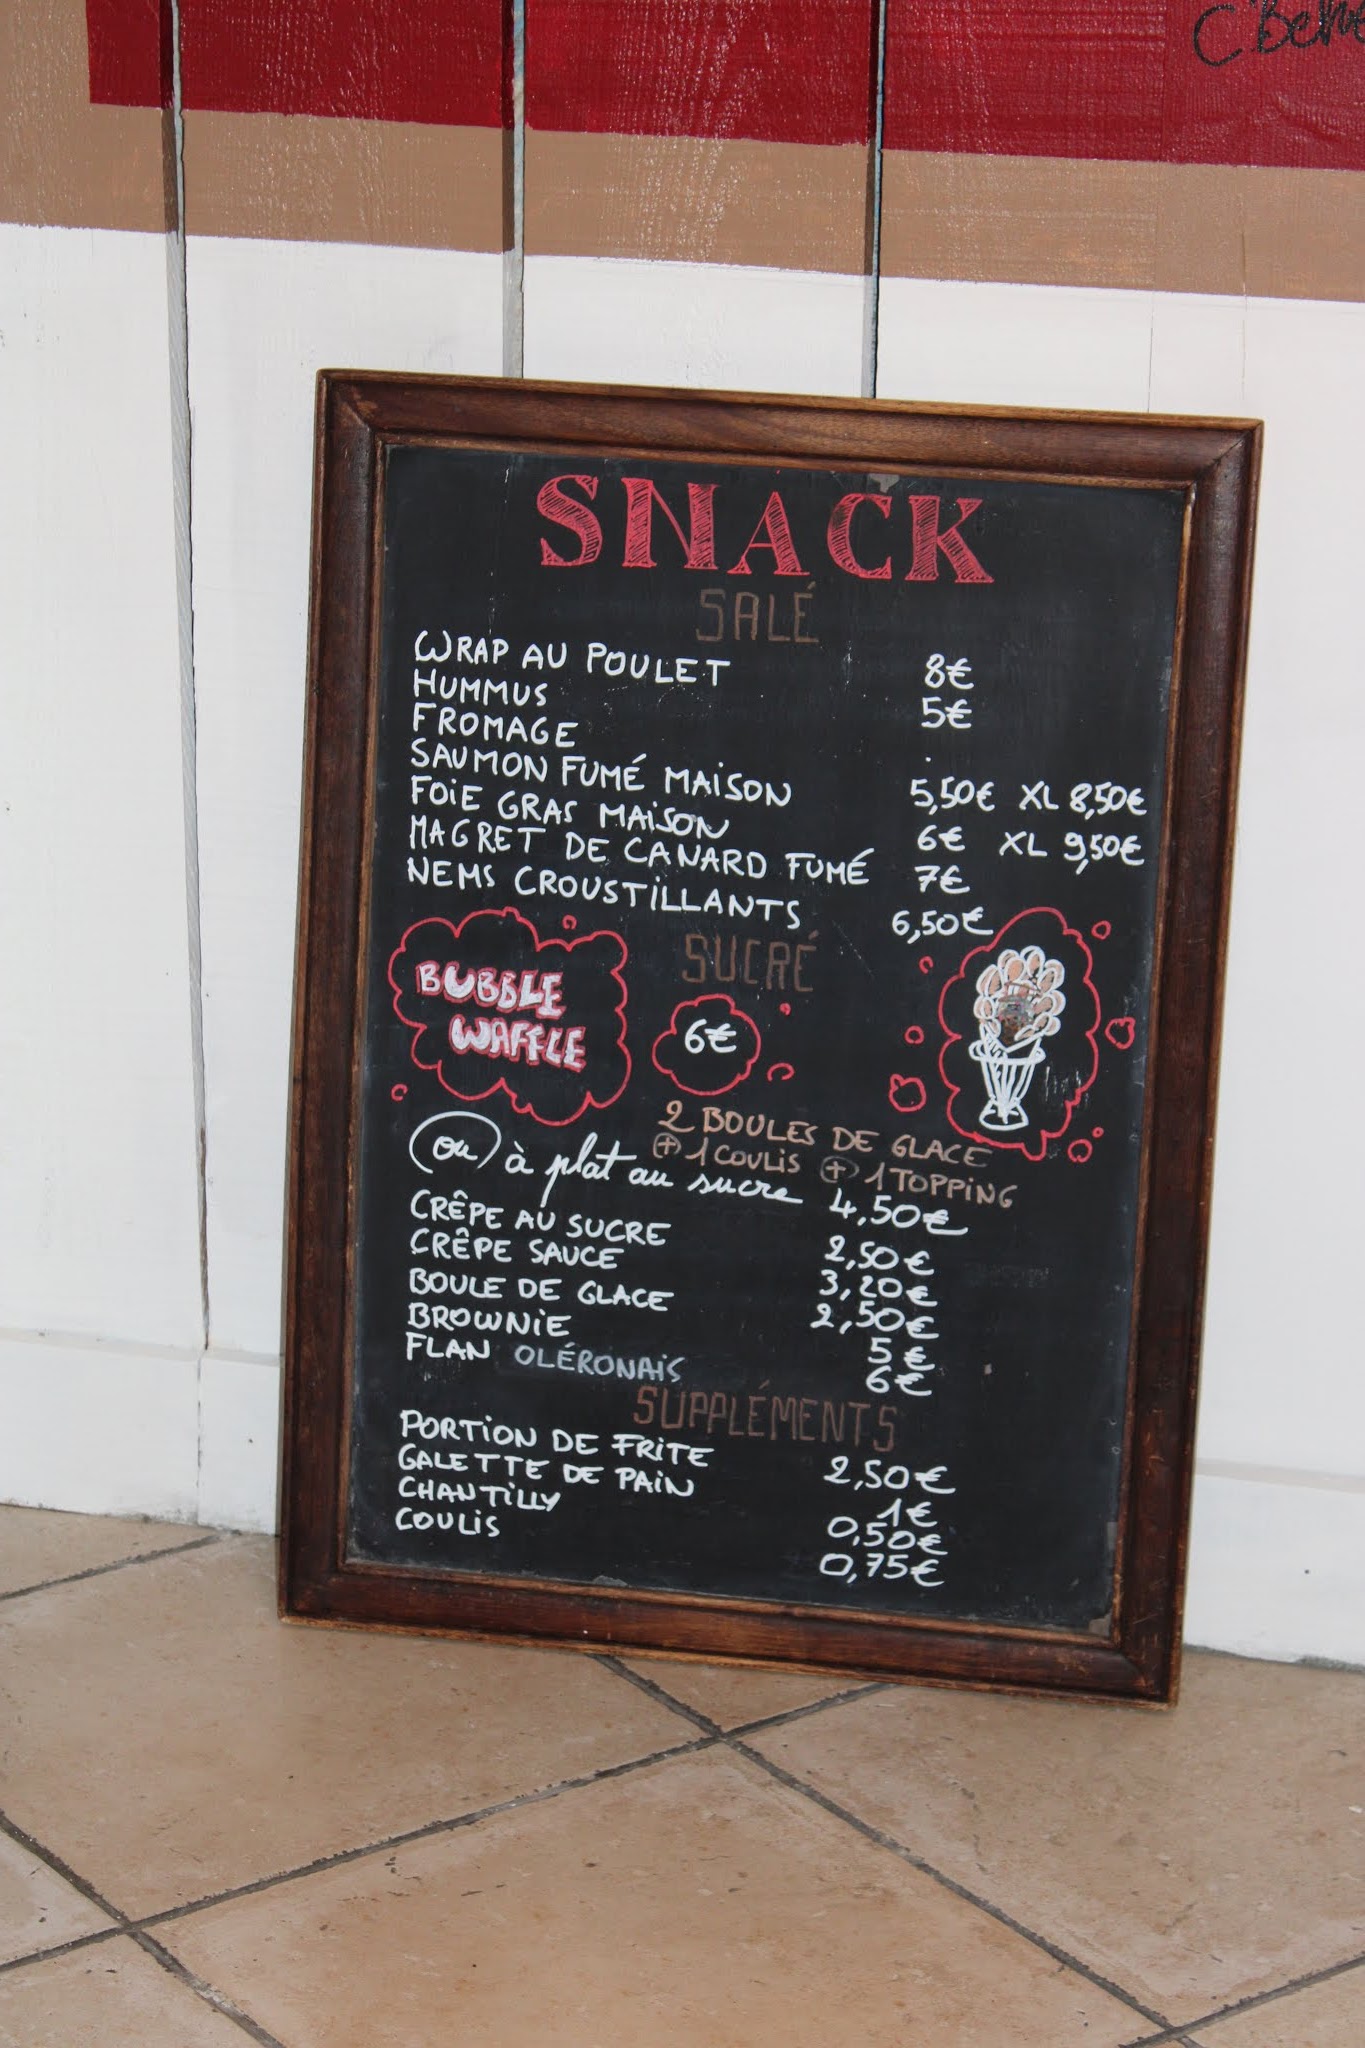 SNACK
SALÉ
WRAP AU POULET 8€
HUMMUS 5€
FROMAGE .
SAUMON FUMÉ MAISON 5,50€ XL 8,50€
FOIE GRAS MAISON 6€ XL 9,50€
MAGRET DE CANARD FUMÉ 7€
NEMS CROUSTILLANTS 6,50€
SUCRÉ
BUBBLE
WAFFLE
6€
2 BOULES DE GLACE
+ 1 COULIS + 1 TOPPING
(ou) à plat au sucre 4,50€
CRÊPE AU SUCRE 2,50€
CRÊPE SAUCE 3,20€
BOULE DE GLACE 2,50€
BROWNIE 5€
FLAN OLÉRONAIS 6€
SUPPLÉMENTS
PORTION DE FRITE 2,50€
GALETTE DE PAIN 1€
CHANTILLY 0,50€
COULIS 0,75€